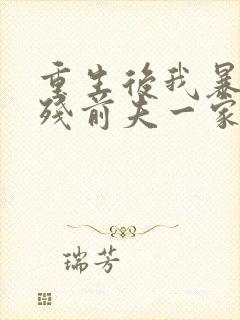 重生後我暴
殘前夫一家
瑞芳